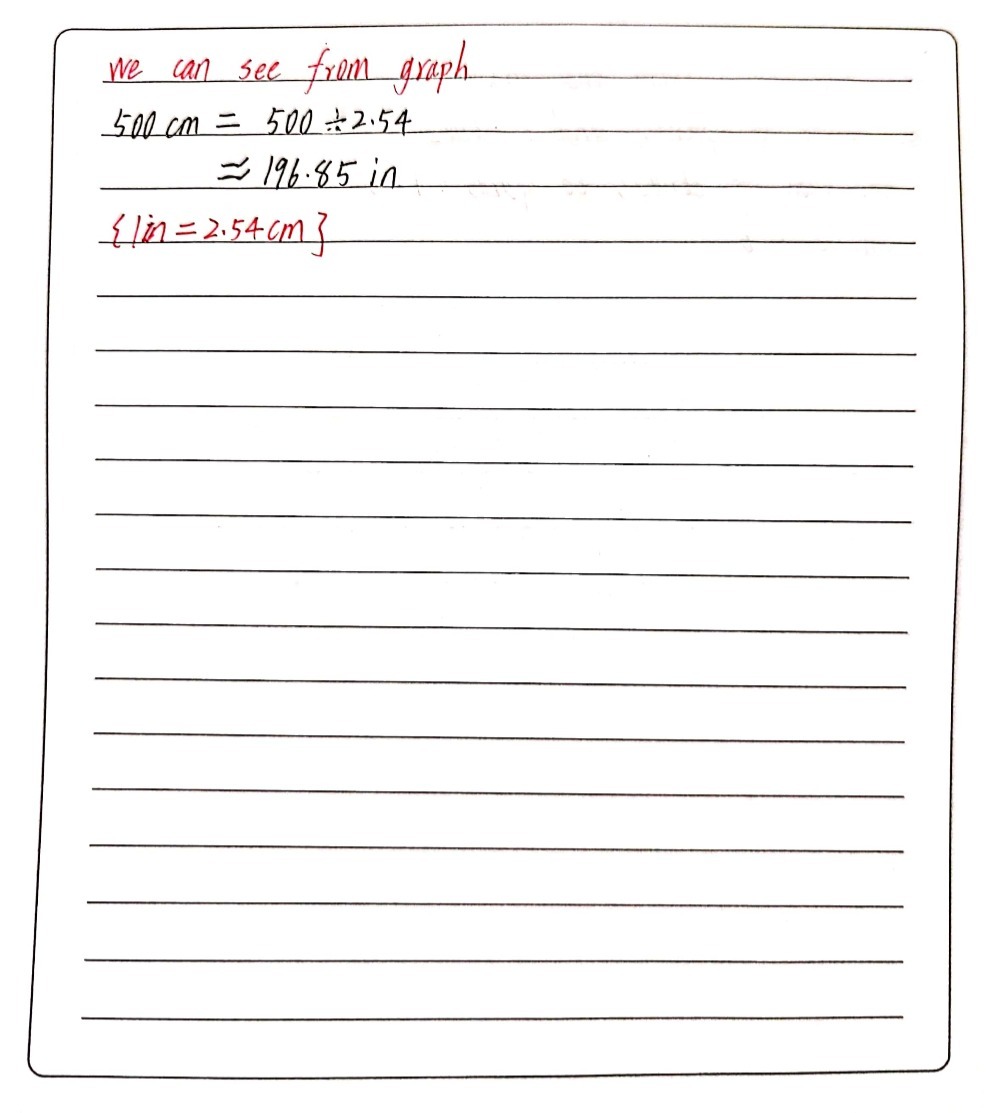 We can see from graph
500 cm = 500 ÷ 2.54
≈ 196.85 in
{1in = 2.54cm}